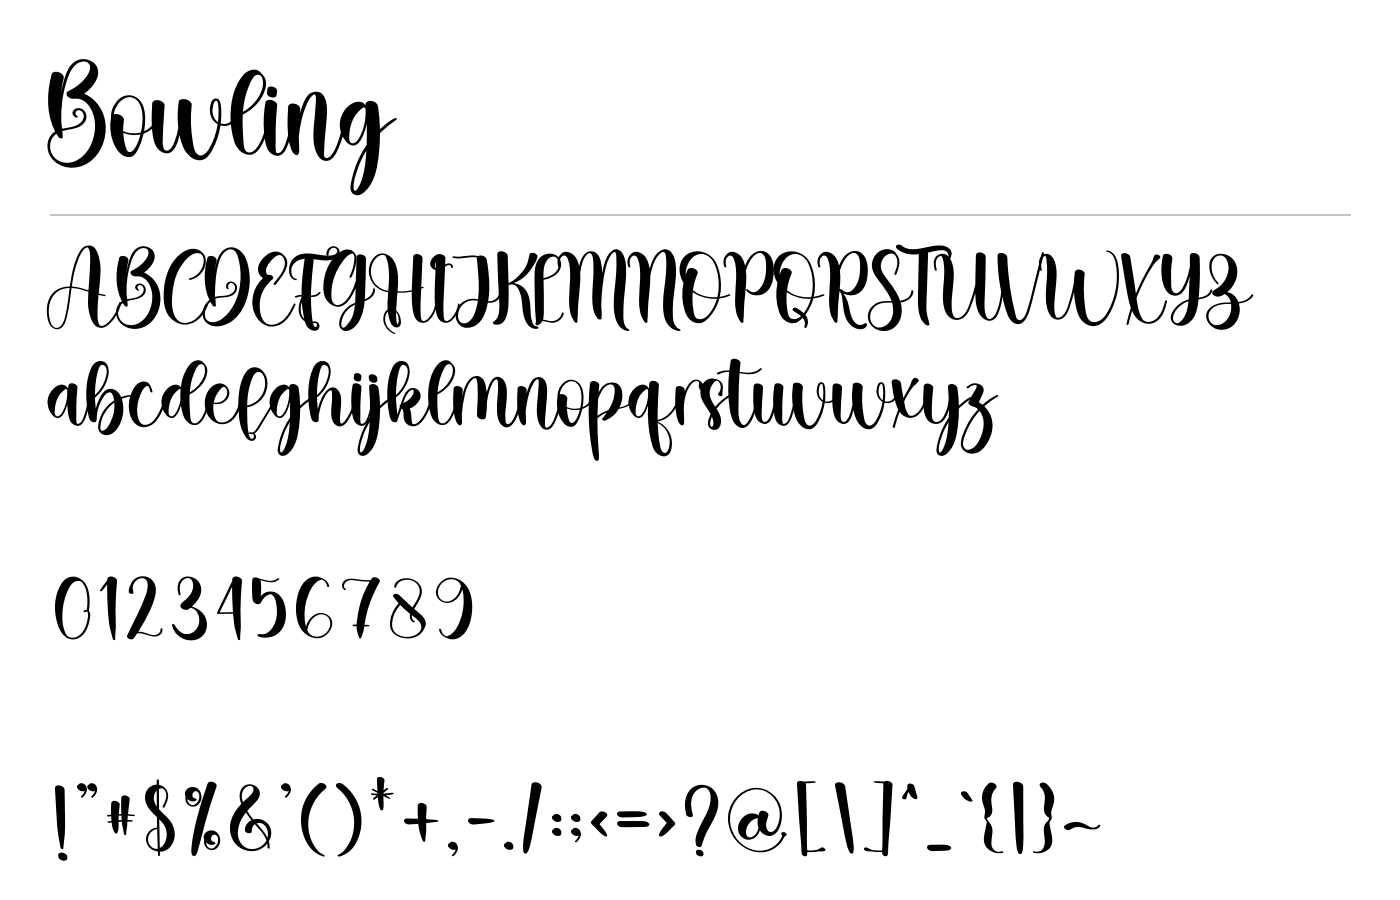 Bowling
ABCDEFGHIJKLMNOPQRSTUVWXYZ
abcdefghijklmnopqrstuvwxyz
0123456789
!"#$%&'()*+,-./:;<=>?@[\]^_`{|}~